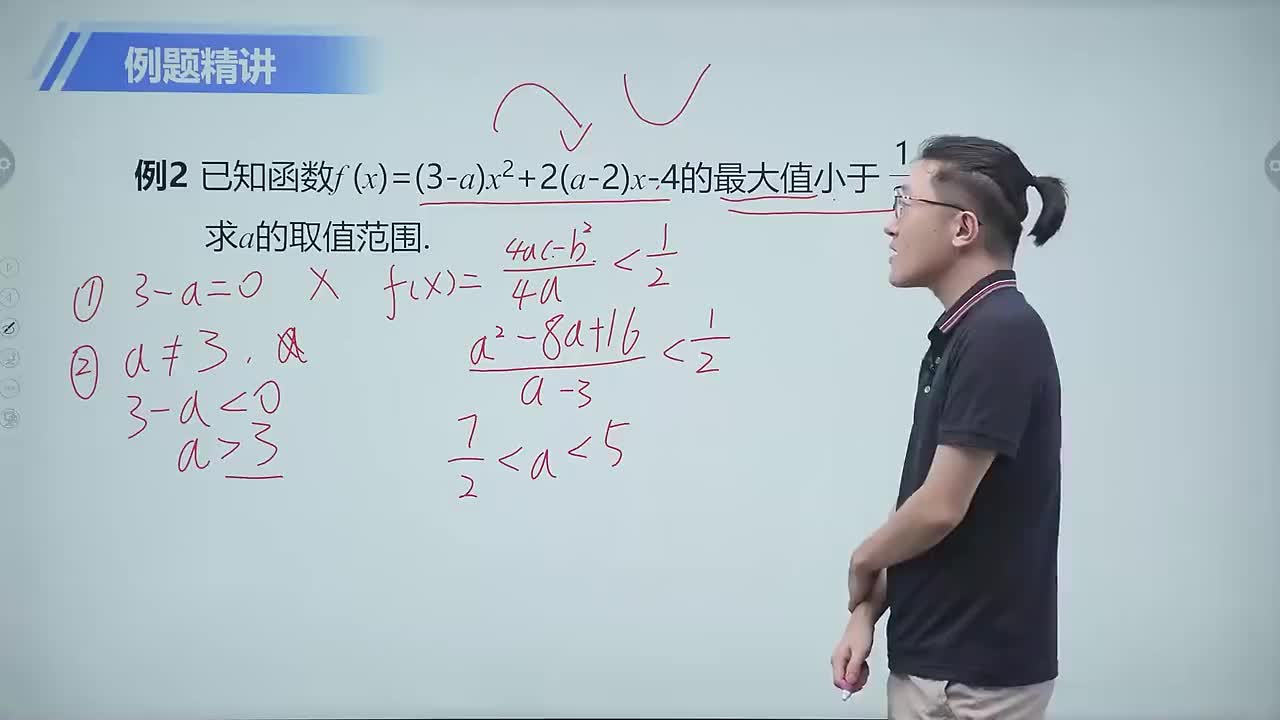 例题精讲
例2 已知函数f(x)=(3-a)x²+2(a-2)x-4的最大值小于 1
求a的取值范围.
① 3-a=0 X f(x)= 4ac-b²/4a < 1/2
② a≠3.
3-a<0
a>3
a²-8a+16/a-3 < 1/2
7/2 <a<5